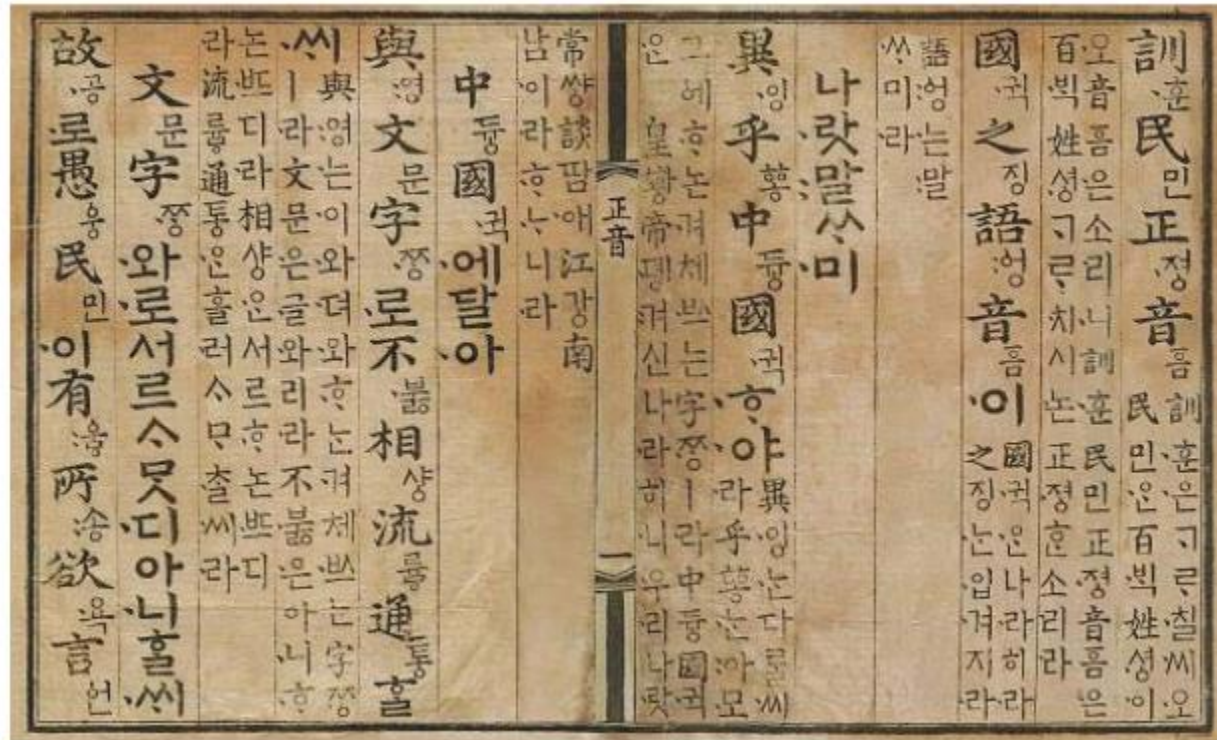 訓훈民민正정音흠 訓훈은ᄀᆞᄅᆞ칠씨오
民민ᄋᆞᆫ百ᄇᆡᆨ姓셩이
오音흠은소리니訓훈民민正졍音흠은
百ᄇᆡᆨ姓셩ᄀᆞᄅᆞ치시논正졍ᄒᆞᆫ소리라
國귁之징語엉音흠이 國귁ᄋᆞᆫ나라히라
之징ᄂᆞᆫ입겨지라
語엉는말
ᄊᆞ미라
나랏말ᄊᆞ미
異잉乎ᅘᅩᆼ中듕國귁ᄒᆞ야 異잉ᄂᆞᆫ다ᄅᆞᆯ씨
라乎ᅘᅩᆼᄂᆞᆫ아모
그에ᄒᆞ논겨체ᄡᅳ는字ᄍᆞᆼㅣ라中듕國귁
ᄋᆞᆫ皇황帝뎽겨신나라히니우리나랏
正音 一
常썅談땀애江강南
남이라ᄒᆞᄂᆞ니라
中듕國귁에달아
與영文문字ᄍᆞᆼ로不붏相샹流륳通통ᄒᆞᆯ
ᄊᆡ 與영는이와뎌와ᄒᆞ는겨체ᄡᅳ는字ᄍᆞᆼ
ㅣ라文문은글와리라不붏은아니ᄒᆞ
논ᄠᅳ디라相샹ᄋᆞᆫ서르ᄒᆞ논ᄠᅳ디
라流륳通통ᄋᆞᆫ흘러ᄉᆞᄆᆞᄎᆞᆯ씨라
文문字ᄍᆞᆼ와로서르ᄉᆞᄆᆞᆺ디아니ᄒᆞᆯᄊᆡ
故공로愚웅民민이有ᅌᅮᆼ所송欲욕言언